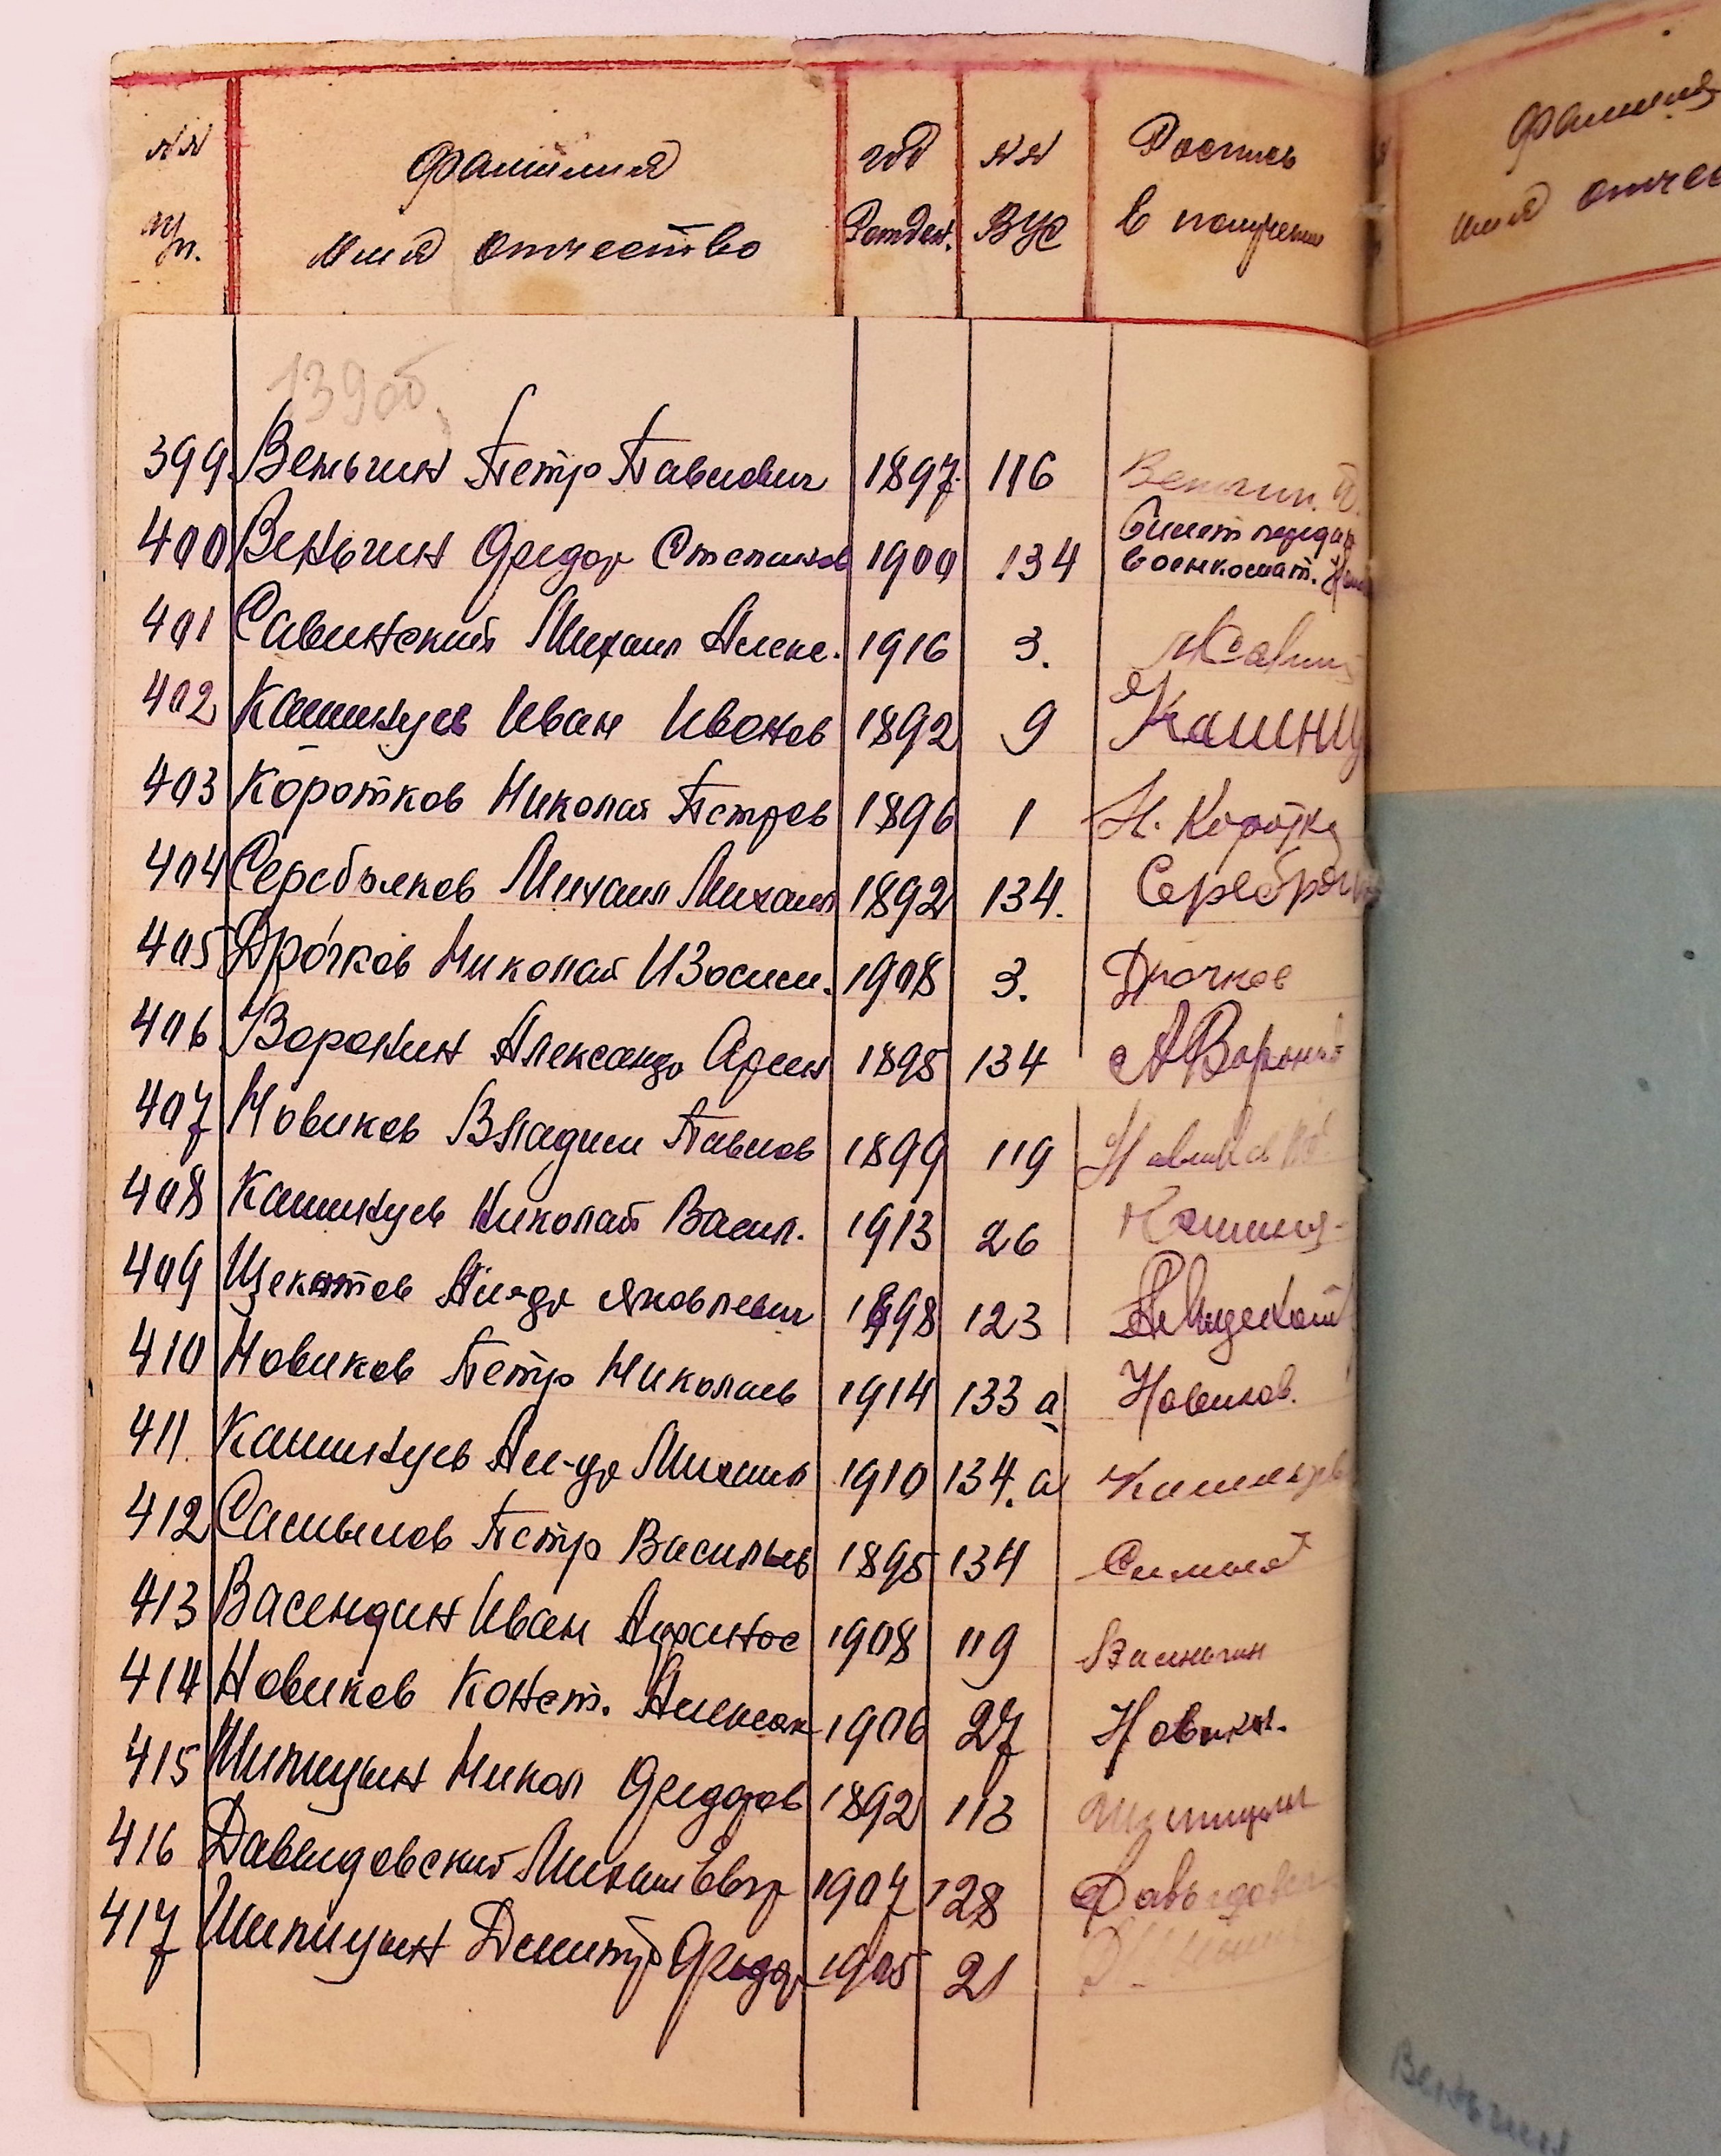 №№ п/п. Фамилия имя отчество год Рожден. №№ ВУС Роспись в получении
Фамилия
имя отчес
139об
399 Веньгин Петр Павлович 1897 116 Венгин. П.
400 Веньгин Федор Степанов 1900 134 билет передан военкомат.
401 Савинский Михаил Алекс. 1916 3. МСавин
402 Кашинцев Иван Иванов 1892 9 Кашинц
403 Коротков Николай Петров 1896 1 Н. Коротко
404 Серебряков Михаил Михаил 1892 134. Серебряк
405 Дрочков Николай Изосим. 1908 3. Дрочков
406 Воронин Александр Арсен 1895 134 АВоронин
407 Новиков Владим Павлов 1899 119 Новиков
408 Кашинцев Николай Васил. 1913 26 Кашинц-
409 Щекотов Ал-др Яковлевич 1898 123
410 Новиков Петр Николаев 1914 133 а Новиков.
411 Кашинцев Ал-др Михаил 1910 134.а Кашинцев
412 Самылов Петр Васильев 1895 134
413 Васендин Иван Афанас 1908 119
414 Новиков Конст. Алексан 1906 27 Новиков.
415 Шипицын Никол Федоров 1892 113 Шипицын
416 Давыдовский Михаил 1907 128 Давыдовск
417 Шипицын Дмитр Федор 1905 21
Веньгин